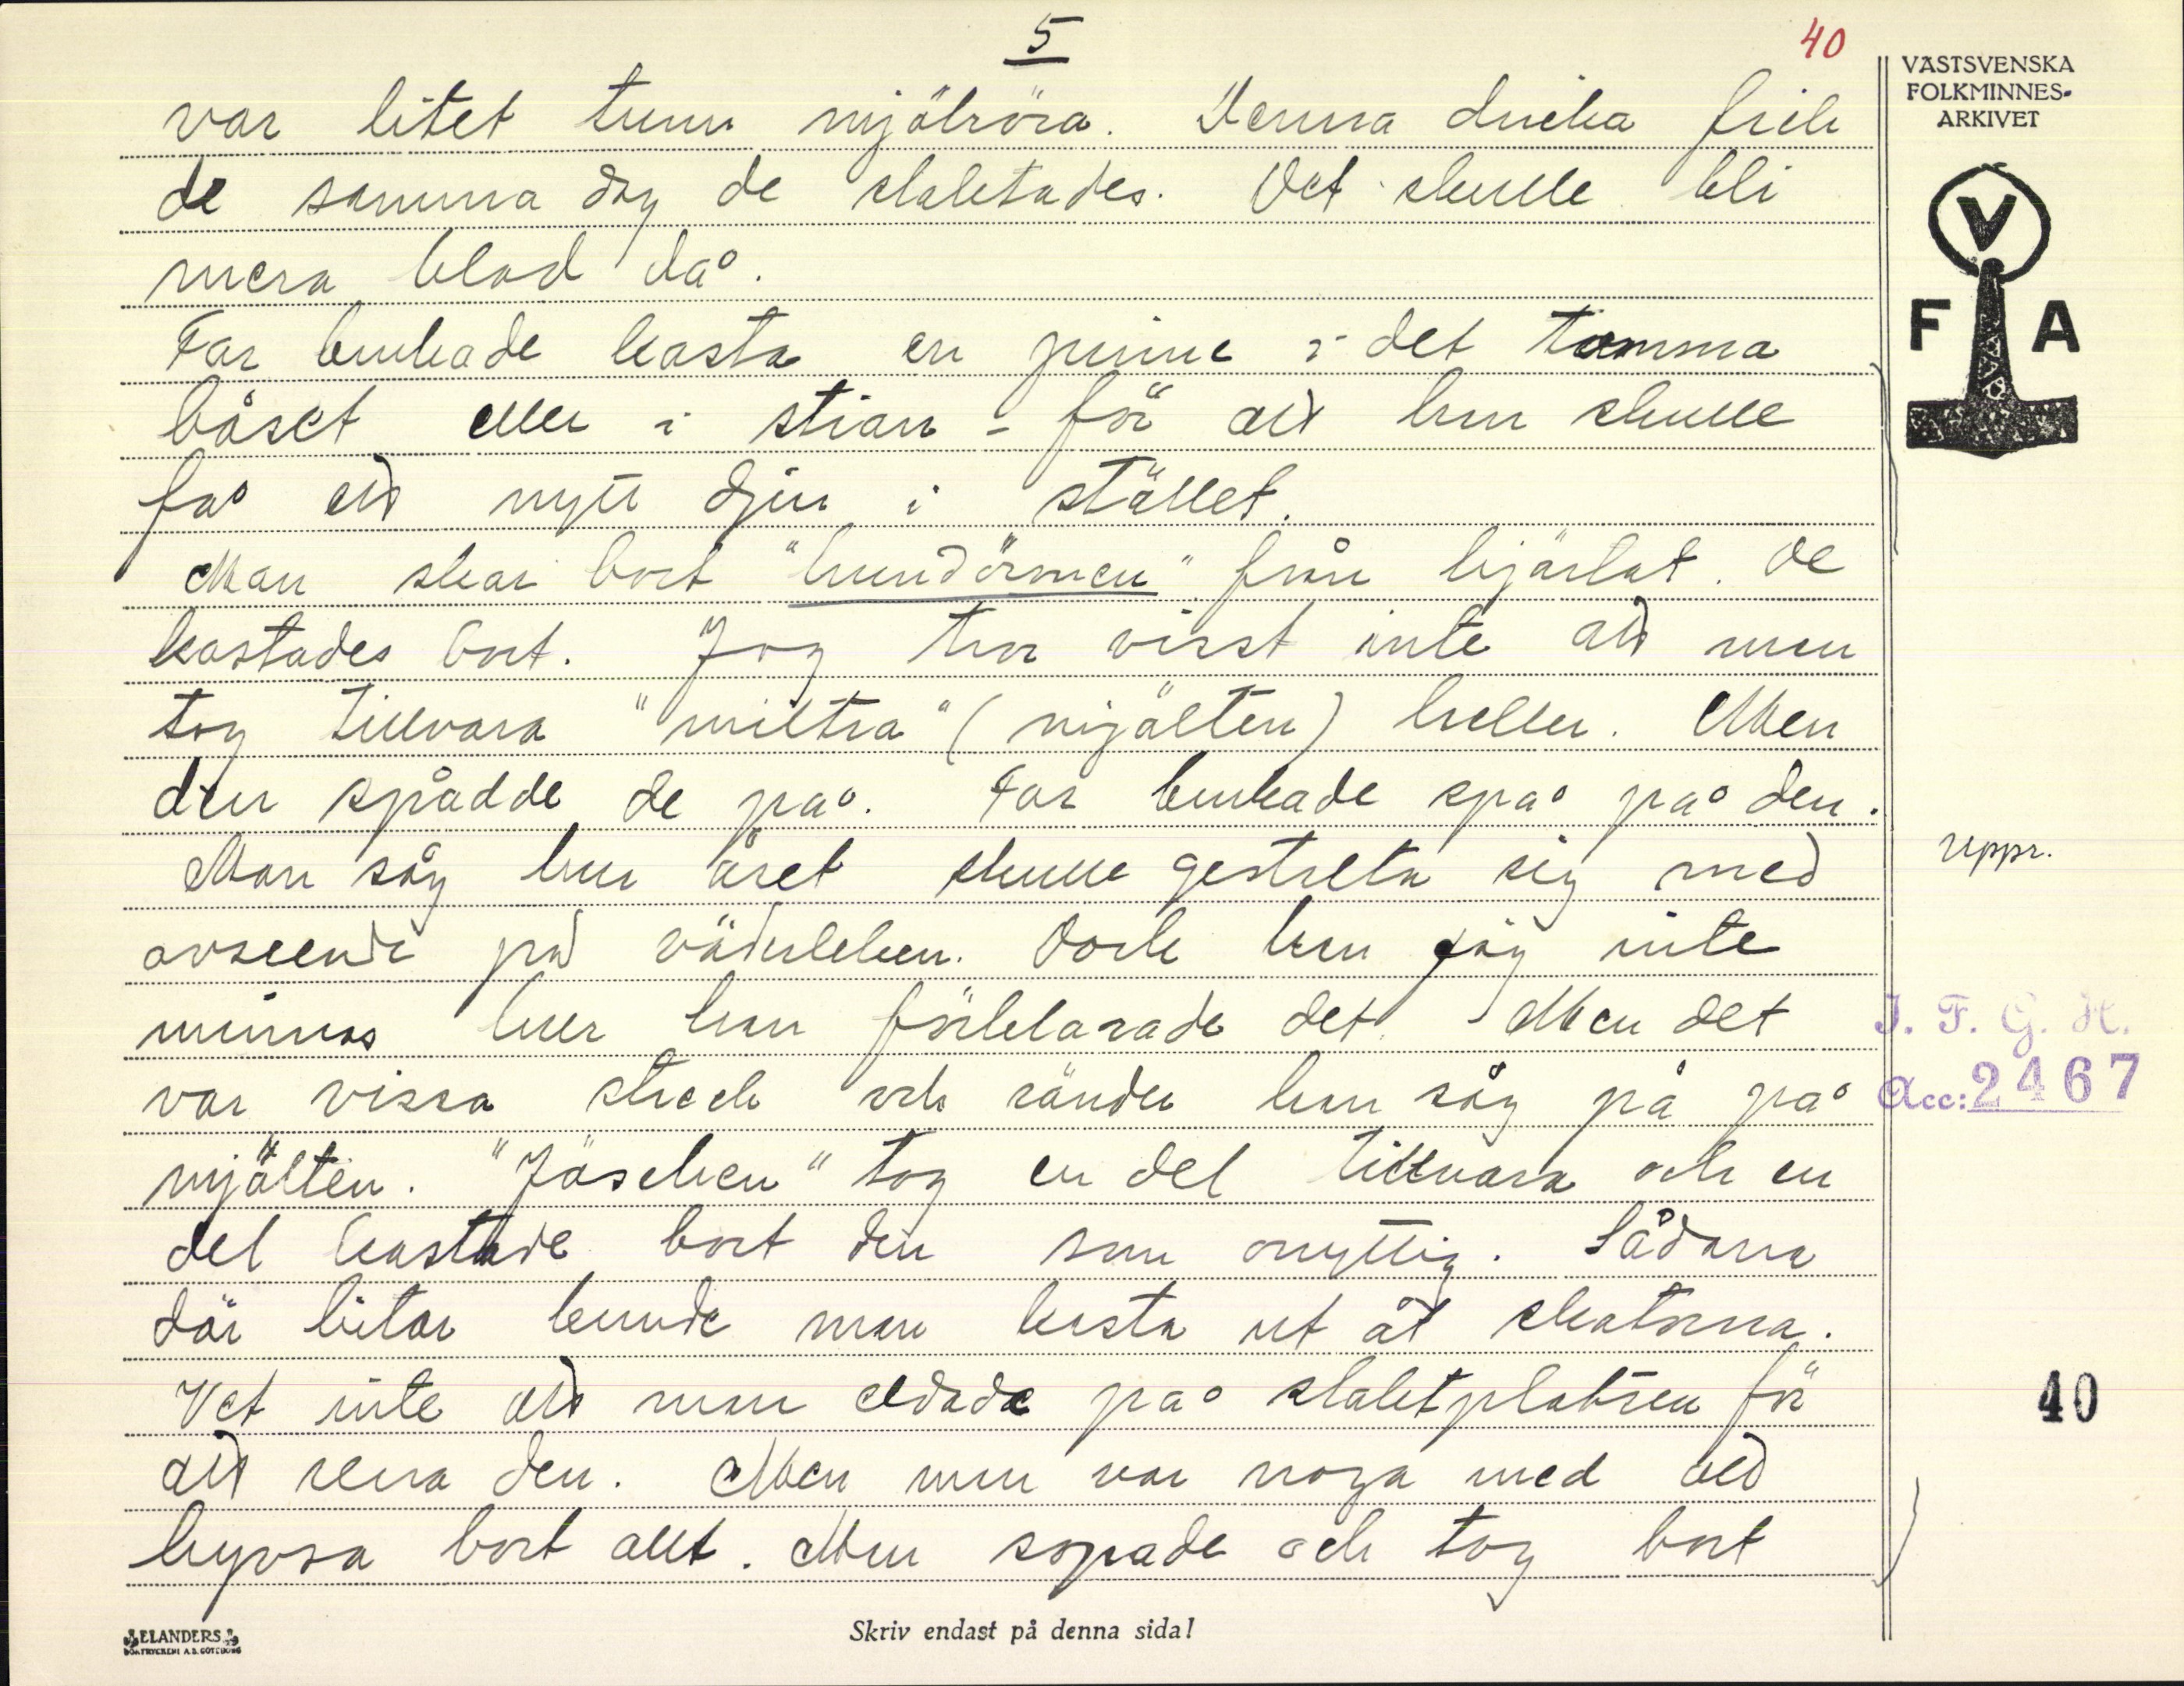 5
40
VÄSTSVENSKA
FOLKMINNES-
ARKIVET
V
F A
var litet tunn mjölröra. Denna dricka fick
de samma dag de slaktades. Det skulle bli
mera blod då.
Far brukade kasta en pinne i det tomma
båset eller i stian - för att han skulle
få ett nytt djur i stället.
Man skar bort "hundöronen" från hjärtat. De
kastades bort. Jag tror visst inte att man
tog tillvara "miltra" (mjälten) heller. Men
den spådde de på. Far brukade spå på den.
Man såg hur året skulle gestalta sig med
avseende på väderleken. Dock kan jag inte
minnas hur han förklarade det. Men det
var vissa streck och ränder han såg på på
mjälten. "Jäseken" tog en del tillvara och en
del kastade bort den som onyttig. Sådana
där bitar kunde man kasta ut åt skatorna.
Vet inte att man eldade på slaktplatsen för
att rena den. Men man var noga med att
hyvsa bort allt. Man sopade och tog bort
uppr.
I. F. G. H.
Acc: 2467
40
ELANDERS
BOKTRYCKERI A.B. GÖTEBORG
Skriv endast på denna sida!